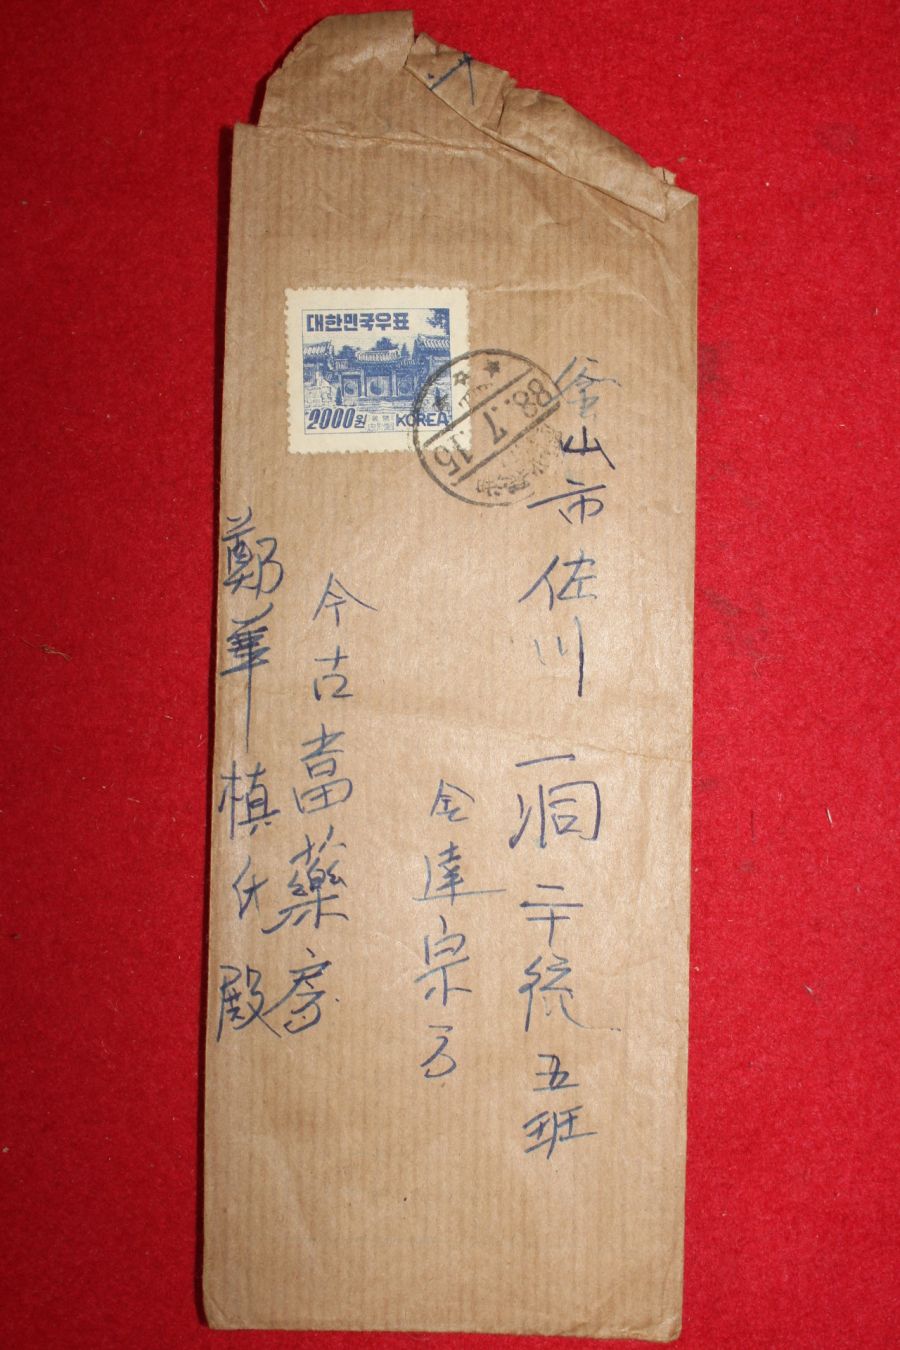 대한민국우표
2000원 KOREA
88.7.15
釜山市佐川一洞二十統五班
金達宗方
今古當藥房
鄭華槙氏殿